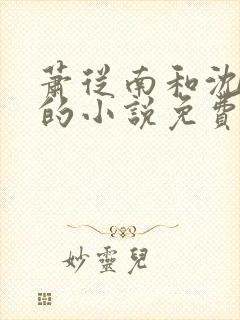 萧从南和沈
的小说免費
妙靈兒